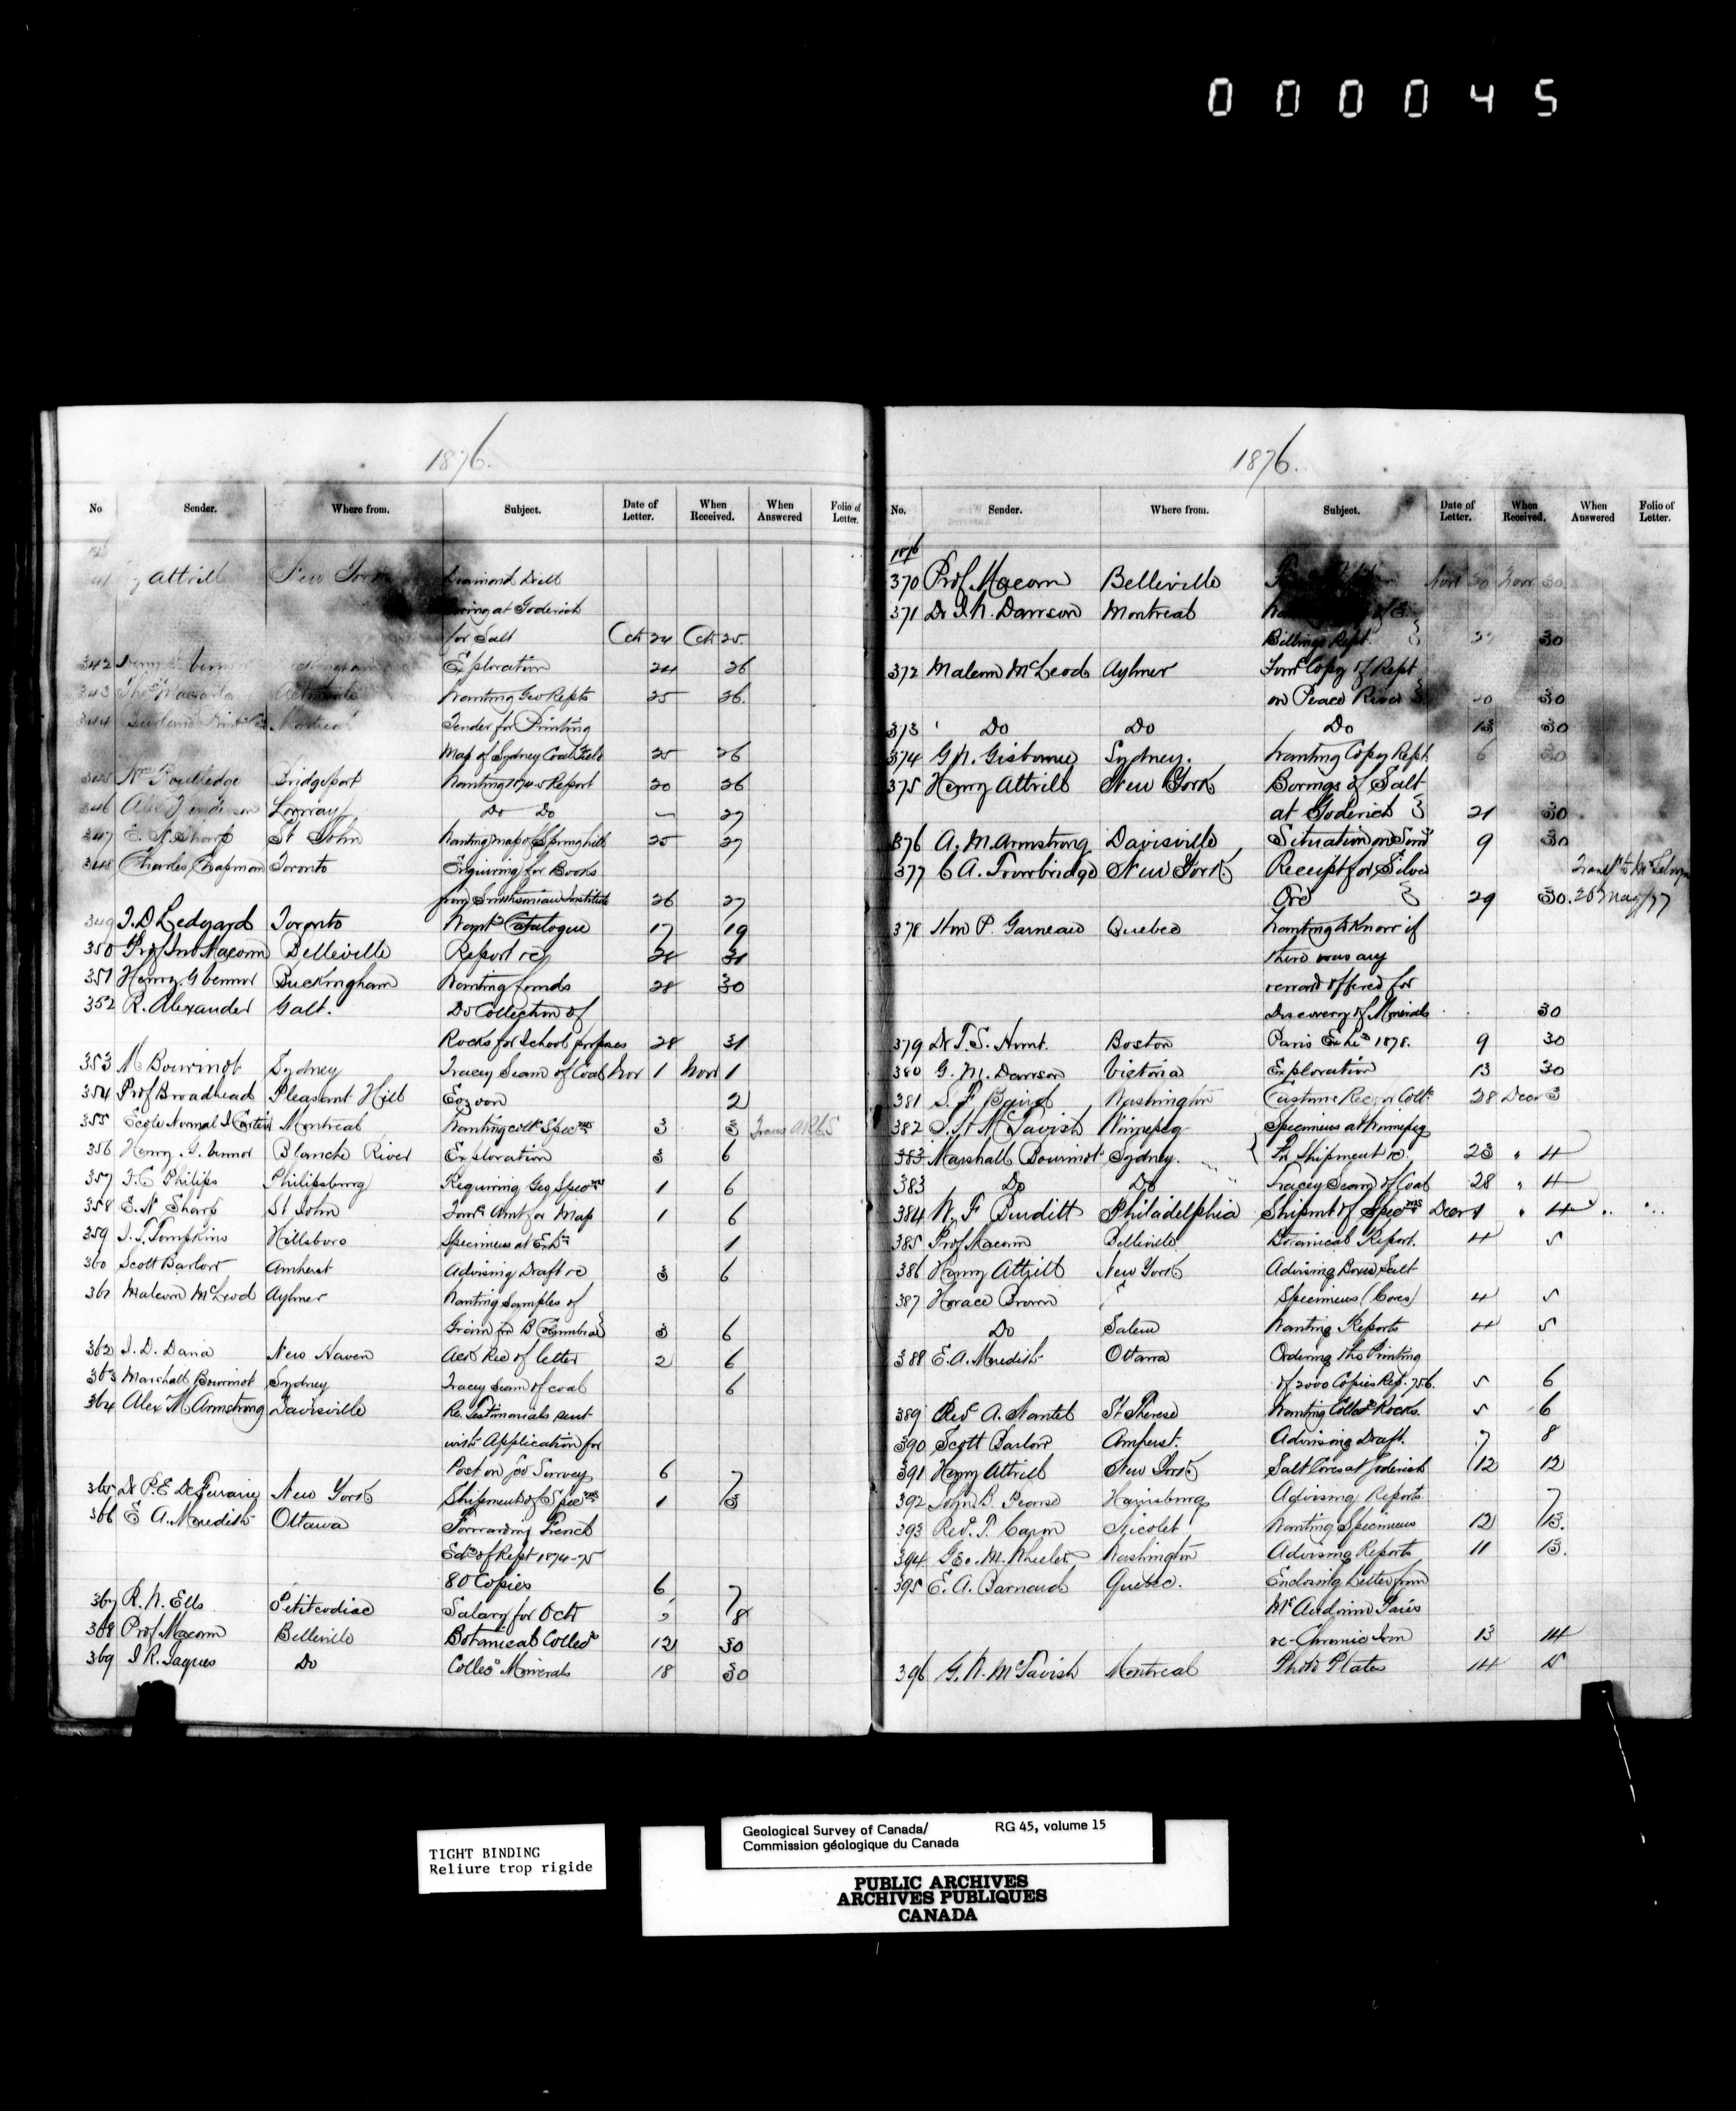 000045
1876.
No Sender. Where from. Subject. Date of Letter. When Received. When Answered Folio of Letter.
Attrill New York Diamond Drill
Boring at Goderich
for Salt Oct 24 Oct 25.
342 Exploration 24 26
343 Wanting Geo Repts 25 26.
344 Tender for Printing
Map of Sydney Coal Field 25 26
345 Wm Routledge Bridgeport Wanting 1874-5 Report 20 26
346 Do Do 27
347 E. N. Sharp St John Wanting map of Springhill 25 27
348 Charles Chapman Toronto Enquiring for Books
from Smithsonian Institute 26 27
349 T. D. Ledyard Toronto Catalogue 17 19
350 Prof Jno Macoun Belleville Report &c 28 31
351 Henry G Vennor Buckingham Wanting funds 28 30
352 R. Alexander Galt. Do Collection of
Rocks for School purposes 28 31
353 M Bourinot Sydney Tracey Seam of Coal Nov 1 Nov 1
354 Prof Broadhead Pleasant Hill Eozoon 2
355 Ecole Normal J Cartier Montreal Wanting collc Specms 3 3
356 Henry G. Vennor Blanche River Exploration 3 6
357 F. C Philips Philipsburg Requiring Geo Specms 1 6
358 E. N. Sharp St John Amt for Map 1 6
359 Tompkins Hillsboro Specimens at 1
360 Scott Barlow Amherst Advising Draft &c 3 6
361 Malcom McLeod Aylmer Wanting Samples of
Grain fr B Columbia 3 6
362 J. D. Dana New Haven Ack Rec of letter 2 6
363 Marshall Bourinot Sydney Tracey Seam of coal 6
364 Alex M Armstrong Davisville Re. Testimonials sent
with Application for
Post on Geo Survey 6 7
365 New York Shipment of Specms 1 8
366 E A. Meredith Ottawa Forwarding French
Edn of Rept 1874-75
80 Copies 6 7
367 R. W. Ells Petitcodiac Salary for Oct 8
368 Prof Macoun Belleville Botanical Collecn 12 30
369 J R. Jaques Do Collecn Minerals 18 30
1876.
No. Sender. Where from. Subject. Date of Letter. When Received. When Answered Folio of Letter.
1876
370 Prof Macoun Belleville Nov 30 Nov 30
371 Dr J. W. Dawson Montreal
Billings Rept 30
372 Malcom McLeod Aylmer Copy of Rept
on Peace River 20 30
373 Do Do Do 13 30
374 G N. Gisborne Sydney. Wanting Copy Rept 6 30
375 Henry Attrill New York Borings of Salt
at Goderich 21 30
376 A. M. Armstrong Davisville Situation on 9 30
377 C A. Trowbridge New York Receipt for Silver
Ore 29 30. 26 May/77
378 Hon P. Garneau Quebec Wanting to Know if
there was any
reward offered for
Discovery of Minerals 30
379 Dr T. S. Hunt. Boston Paris Exhn 1878. 9 30
380 G. M. Dawson Victoria Exploration 13 30
381 S. F Baird Washington 28 Decr 3
382 McTavish Winnipeg Specimens at Winnipeg
383 Marshall Bourinot Sydney. Fr Shipment &c. 23 " 4
383 Do Do Tracey Seam of Coal 28 " 4
384 W. F Burditt Philadelphia Shipmt of Specms Decr 1 " 4
385 Prof Macoun Belleville Botanical Report. 4 5
386 Henry Attrill New York Advising Boxes Salt
387 Horace Brown Specimens (Cores) 4 5
Do Salem Wanting Reports 4 5
388 E. A. Meredith Ottawa Ordering the Printing
of 2000 Copies Rep. 75 6. 5 6
389 Revd A. Nantel St Therese Wanting Collecn Rocks. 5 6
390 Scott Barlow Amherst. Advising Draft. 7 8
391 Henry Attrill New York Salt Cores at Goderich 12 12
392 John B. Pearse Harrisburg Advising Reports 7
393 Revd. T. Caron Nicolet Wanting Specimens 12 13.
394 Geo. M. Wheeler Washington Advising Reports 11 13.
395 E. A. Barnard Quebec. Enclosing Letter from
Mr Audoinn Paris
re-Chromic Iron 13 14
396 G. N. McTavish Montreal Photo Plates 14 15
TIGHT BINDING
Reliure trop rigide
Geological Survey of Canada/ RG 45, volume 15
Commission géologique du Canada
PUBLIC ARCHIVES
ARCHIVES PUBLIQUES
CANADA